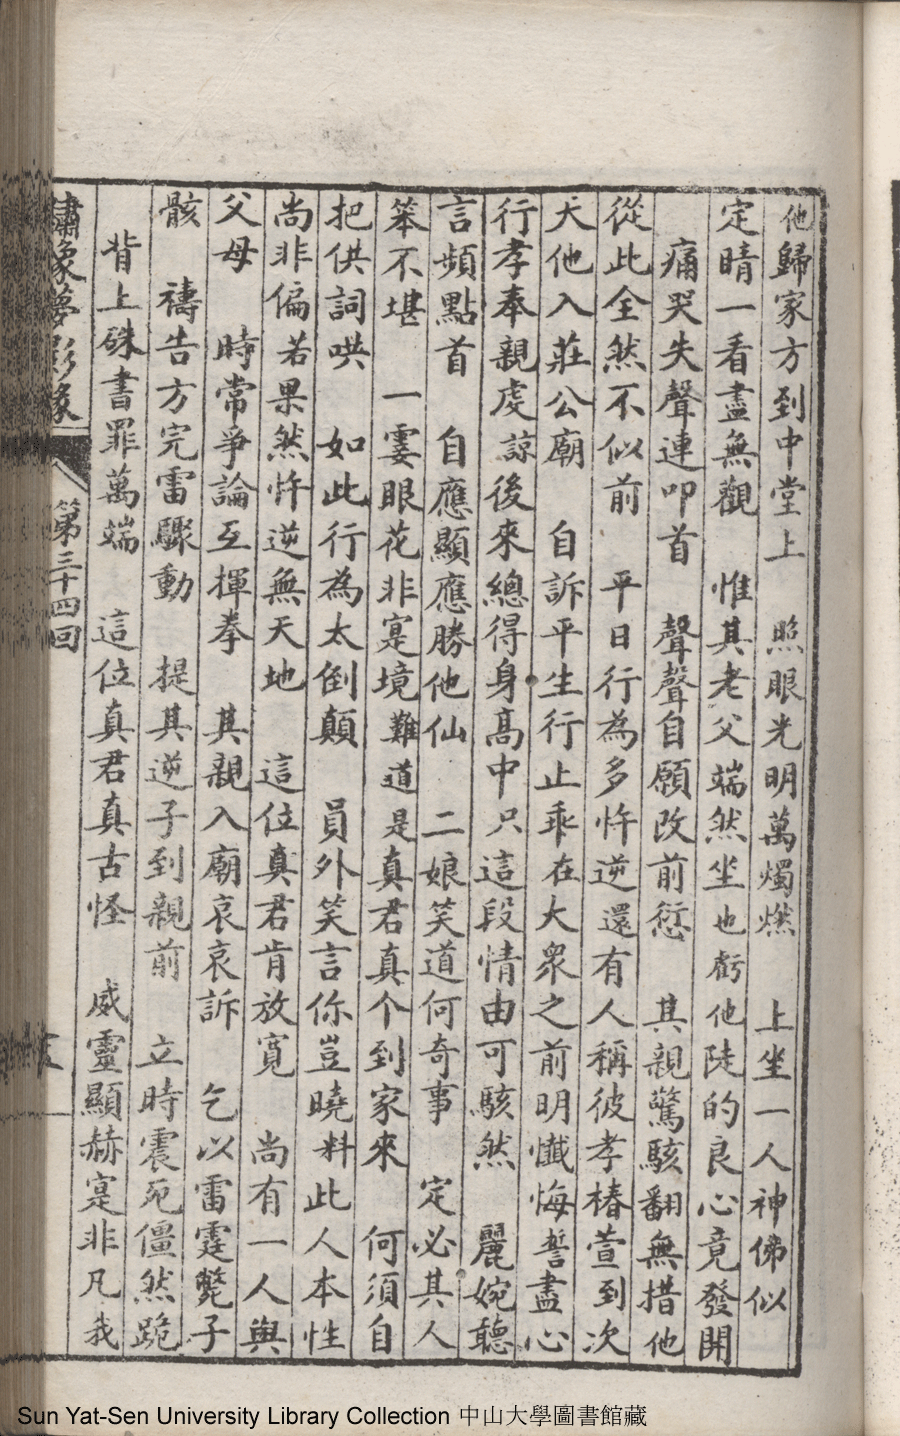 他歸家方到中堂上　照眼光明萬燭燃　上坐一人神佛似
定睛一看盡無觀　惟其老父端然坐也虧他陡的良心竟發開
痛哭失聲連叩首　聲聲自願改前愆　其親驚駭翻無措他
從此全然不似前　平日行為多忤逆還有人稱彼孝椿萱到次
天他入莊公廟　自訴平生行止乖在大眾之前明懺悔誓盡心
行孝奉親虔諒後來總得身高中只這段情由可駭然　麗婉聽
言頻點首　自應顯應勝他仙　二娘笑道何奇事　定必其人
笨不堪　一霎眼花非寔境難道是真君真个到家來　何須自
把供詞哄　如此行為太倒顛　員外笑言你豈曉料此人本性
尚非偏若果然忤逆無天地　這位真君肯放寬　尚有一人與
父母　時常爭論互揮拳　其親入廟哀哀訴　乞以雷霆斃子
骸　禱告方完雷驟動　提其逆子到親前　立時震死僵然跪
背上硃書罪萬端　這位真君真古怪　威靈顯赫寔非凡我
繡像夢影緣　第三十四回
Sun Yat-Sen University Library Collection 中山大學圖書館藏